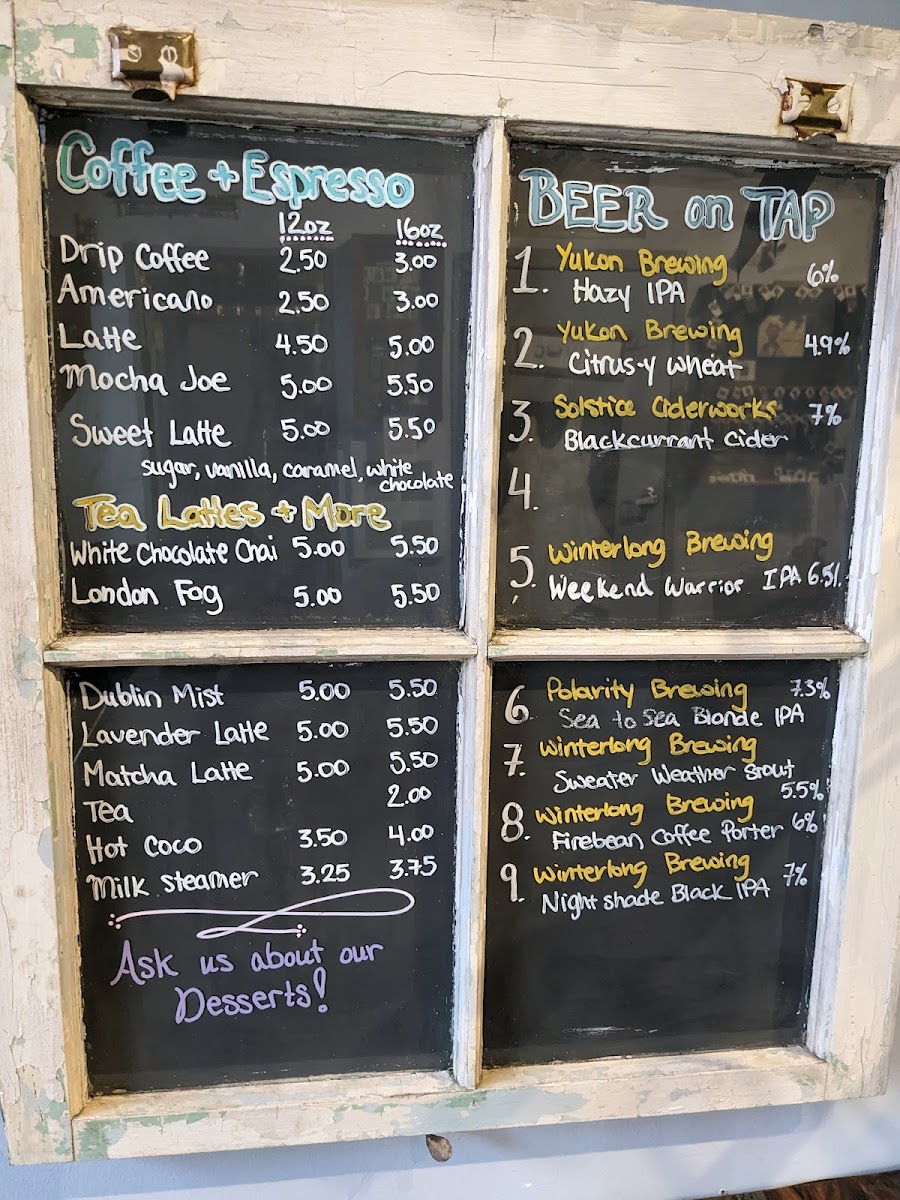 Coffee + Espresso
12oz 16oz
Drip Coffee 2.50 3.00
Americano 2.50 3.00
Latte 4.50 5.00
Mocha Joe 5.00 5.50
Sweet Latte 5.00 5.50
sugar, vanilla, caramel, white
chocolate
Tea Lattes + More
White Chocolate Chai 5.00 5.50
London Fog 5.00 5.50
Dublin Mist 5.00 5.50
Lavender Latte 5.00 5.50
Matcha Latte 5.00 5.50
Tea 2.00
Hot Coco 3.50 4.00
Milk Steamer 3.25 3.75
Ask us about our
Desserts!
BEER on TAP
1. Yukon Brewing 6%
Hazy IPA
2. Yukon Brewing 4.9%
Citrus-y Wheat
3. Solstice Ciderworks 7%
Blackcurrant Cider
4.
5. Winterlong Brewing
Weekend Warrior IPA 6.5%
6. Polarity Brewing 7.3%
Sea to Sea Blonde IPA
7. Winterlong Brewing
Sweater Weather Stout
5.5%
8. Winterlong Brewing
Firebean Coffee Porter 6%
9. Winterlong Brewing 7%
Nightshade Black IPA